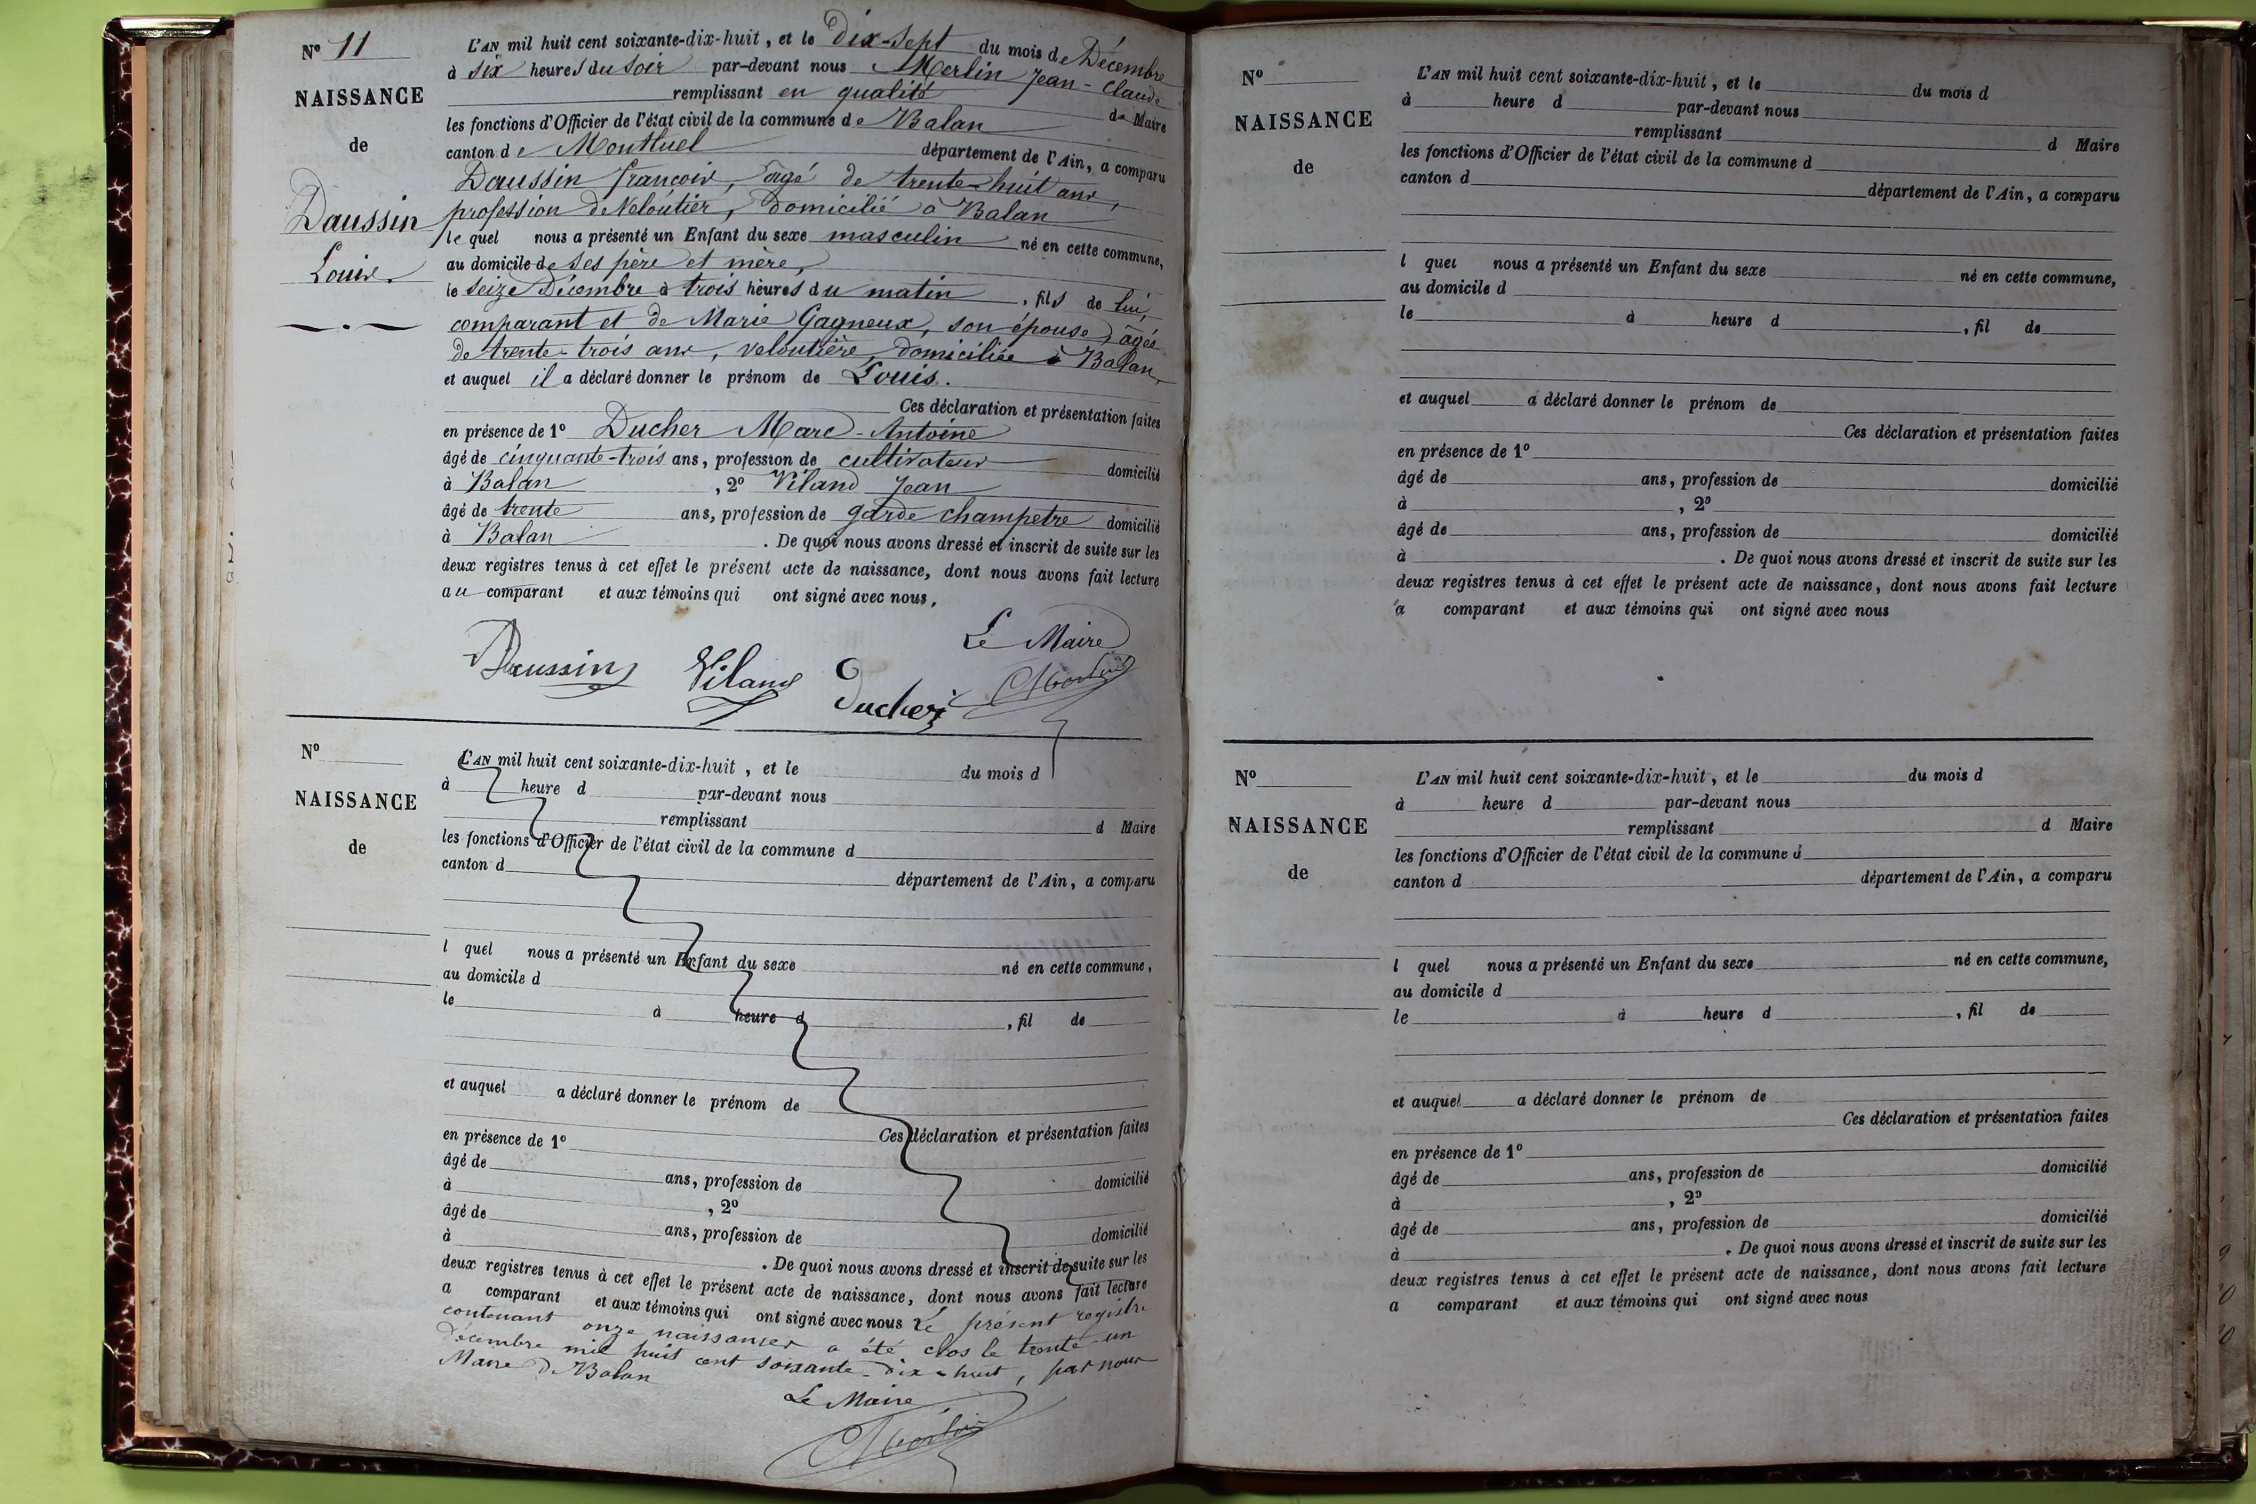 Nº 11
NAISSANCE
de
Daussin
Louis.
L'AN mil huit cent soixante-dix-huit, et le dix-sept du mois de Décembre
à six heures du soir par-devant nous Merlin Jean-Claude
remplissant en qualité de Maire
les fonctions d'Officier de l'état civil de la commune de Balan
canton de Montluel département de l'Ain, a comparu
Daussin françois, âgé de trente-huit ans,
profession de Veloutier, domicilié à Balan
lequel nous a présenté un Enfant du sexe masculin né en cette commune,
au domicile de ses père et mère,
le seize Décembre à trois heures du matin, fils de lui,
comparant et de Marie Gagneux, son épouse, âgés
de trente-trois ans, veloutière, domiciliée à Balan,
et auquel il a déclaré donner le prénom de Louis.
Ces déclaration et présentation faites
en présence de 1º Ducher Marc-Antoine
âgé de cinquante-trois ans, profession de cultivateur domicilié
à Balan, 2º Viland Jean
âgé de trente ans, profession de garde champetre domicilié
à Balan. De quoi nous avons dressé et inscrit de suite sur les
deux registres tenus à cet effet le présent acte de naissance, dont nous avons fait lecture
au comparant et aux témoins qui ont signé avec nous,
Le Maire
Daussin Viland Ducher Merlin
Nº
NAISSANCE
de
L'AN mil huit cent soixante-dix-huit, et le du mois d
à heure d par-devant nous
remplissant d Maire
les fonctions d'Officier de l'état civil de la commune d
canton d département de l'Ain, a comparu
l quel nous a présenté un Enfant du sexe né en cette commune,
au domicile d
le à heure d , fil de
et auquel a déclaré donner le prénom de
Ces déclaration et présentation faites
en présence de 1º
âgé de ans, profession de domicilié
à , 2º
âgé de ans, profession de domicilié
à . De quoi nous avons dressé et inscrit de suite sur les
deux registres tenus à cet effet le présent acte de naissance, dont nous avons fait lecture
a comparant et aux témoins qui ont signé avec nous Le présent registre
contenant onze naissances a été clos le trente-un
Décembre mil huit cent soixante-dix-huit, par nous
Maire de Balan
Le Maire
Merlin
Nº
NAISSANCE
de
L'AN mil huit cent soixante-dix-huit, et le du mois d
à heure d par-devant nous
remplissant d Maire
les fonctions d'Officier de l'état civil de la commune d
canton d département de l'Ain, a comparu
l quel nous a présenté un Enfant du sexe né en cette commune,
au domicile d
le à heure d , fil de
et auquel a déclaré donner le prénom de
Ces déclaration et présentation faites
en présence de 1º
âgé de ans, profession de domicilié
à , 2º
âgé de ans, profession de domicilié
à . De quoi nous avons dressé et inscrit de suite sur les
deux registres tenus à cet effet le présent acte de naissance, dont nous avons fait lecture
a comparant et aux témoins qui ont signé avec nous
Nº
NAISSANCE
de
L'AN mil huit cent soixante-dix-huit, et le du mois d
à heure d par-devant nous
remplissant d Maire
les fonctions d'Officier de l'état civil de la commune d
canton d département de l'Ain, a comparu
l quel nous a présenté un Enfant du sexe né en cette commune,
au domicile d
le à heure d , fil de
et auquel a déclaré donner le prénom de
Ces déclaration et présentation faites
en présence de 1º
âgé de ans, profession de domicilié
à , 2º
âgé de ans, profession de domicilié
à . De quoi nous avons dressé et inscrit de suite sur les
deux registres tenus à cet effet le présent acte de naissance, dont nous avons fait lecture
a comparant et aux témoins qui ont signé avec nous